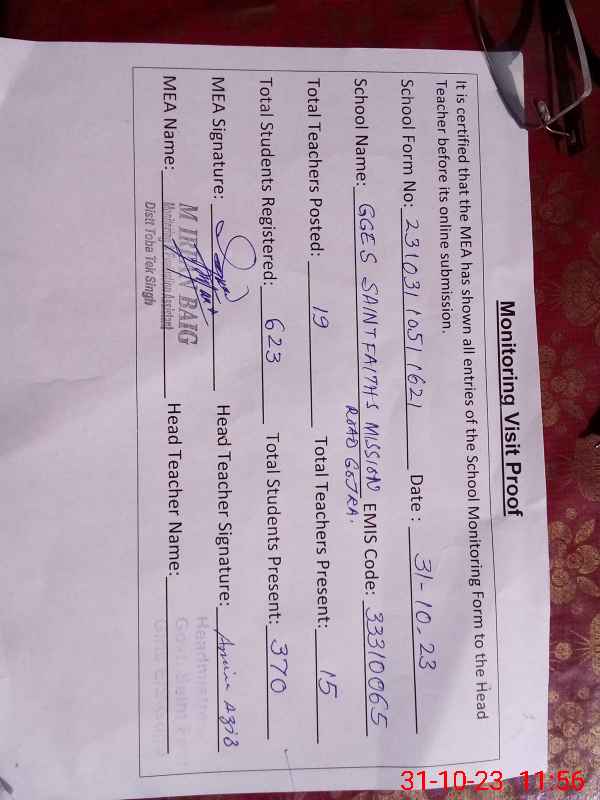 Monitoring Visit Proof
It is certified that the MEA has shown all entries of the School Monitoring Form to the Head
Teacher before its online submission.
School Form No: 23103110511621 Date : 31-10-23
School Name: GGES SAINT FAITHS MISSION EMIS Code: 33310065
ROAD GOJRA.
Total Teachers Posted: 19 Total Teachers Present: 15
Total Students Registered: 623 Total Students Present: 370
MEA Signature: Head Teacher Signature:
M IRFAN BAIG
MEA Name: Monitoring Evaluation Assistant Head Teacher Name:
Distt Toba Tek Singh
31-10-23 11:56